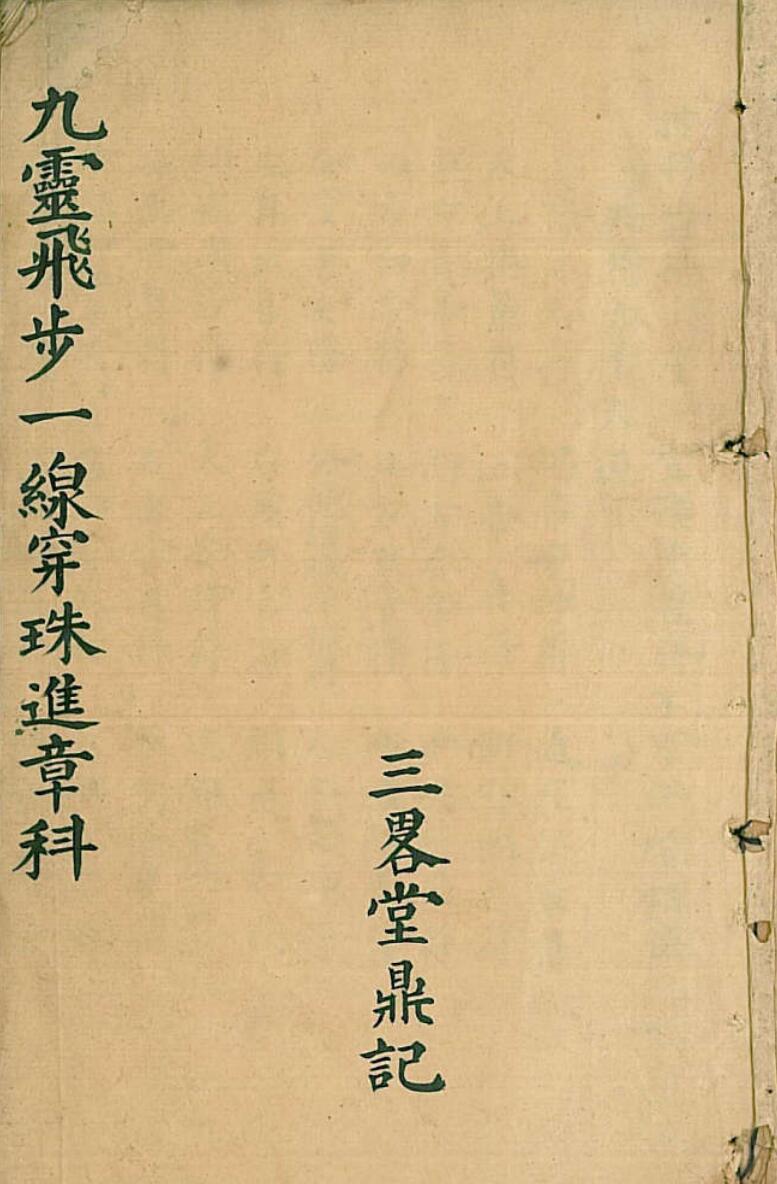 三畧堂鼎記
九靈飛步一線穿珠進章科